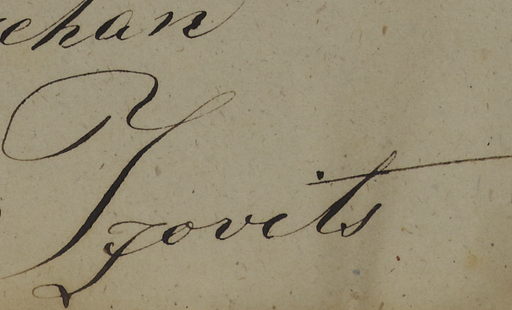 chan
Tzovits